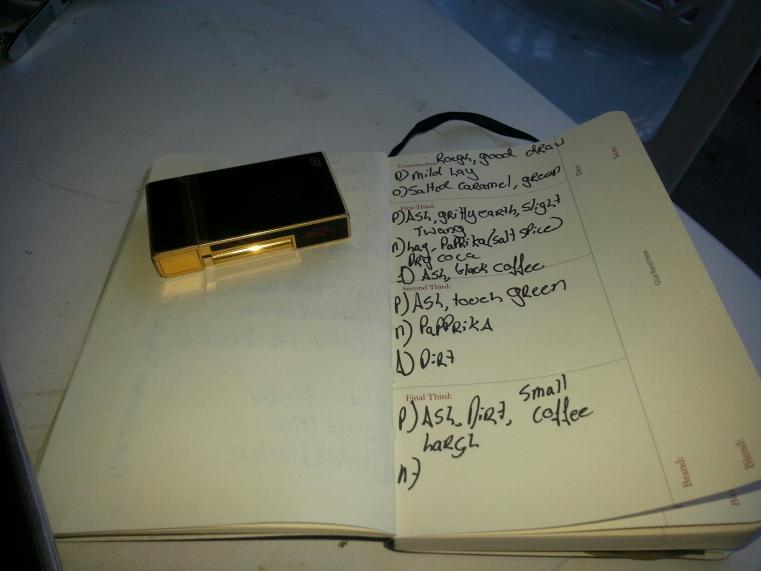 Construction: Rough, good draw
D) mild hay
O) Salted caramel, green
First Third:
P) Ash, gritty earth, slight
Twang
n) hay, Paprika (salt spice)
Dry coca
Ash, black coffee
Second Third:
P) Ash, touch green
n) PaPPRiKA
Dirt
Final Third:
P) Ash, Dirt, small
coffee
hargh
n)
Date:
Name:
Brand:
Blend: